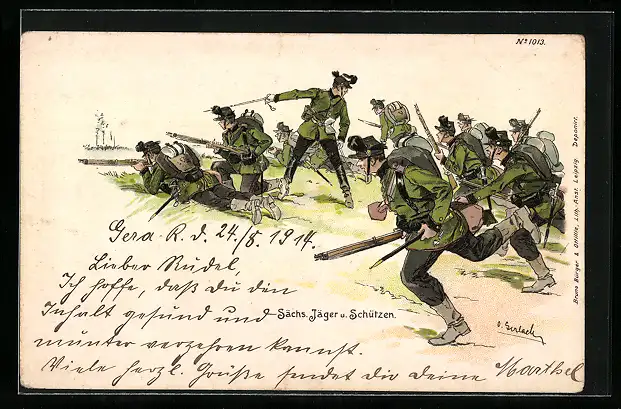 No 1013.
Bruno Bürger & Ottillie, Lith. Anst. Leipzig. Deponirt.
Gera. R. d. 24./8. 1914.
Lieber Rudel,
Ich hoffe, daß Du den
Inhalt gesund und
Sächs. Jäger u. Schützen.
O. Gerlach
munter verzehren kannst.
Viele herzl. Grüße sendet dir deine Marthel